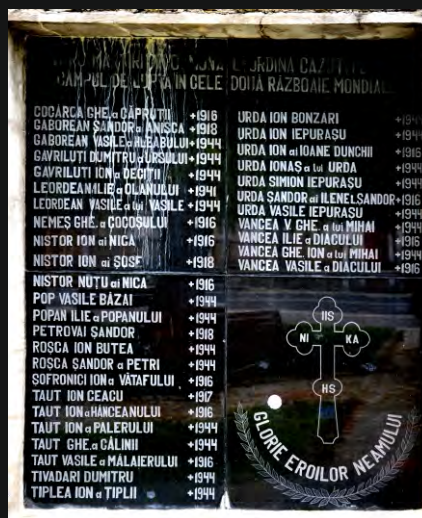 CÂMPUL DE LUPTĂ ÎN CELE DOUĂ RĂZBOAIE MONDIALE
COCÂRCA GHE. a CĂPRUȚII +1916
GABOREAN ȘANDOR a ANISCA +1918
GABOREAN VASILE a HLEABULUI +1944
GAVRILUȚI DUMITRU a URSULUI +1944
GAVRILUȚI ION a DECITII +1944
LEORDEAN ILIE a OLANULUI +1941
LEORDEAN VASILE a lui VASILE +1944
NEMEȘ GHE. a COCOȘULUI +1916
NISTOR ION ai NICA +1916
NISTOR ION ai ȘOSE +1918
NISTOR NUȚU ai NICA +1916
POP VASILE BĂZAI +1944
POPAN ILIE a POPANULUI +1944
PETROVAI ȘANDOR +1918
ROȘCA ION BUTEA +1944
ROȘCA ȘANDOR a PETRI +1944
ȘOFRONICI ION a VĂTAFULUI +1916
TAUT ION CEACU +1917
TAUT ION a HÂNCEANULUI +1916
TAUT ION a PALERULUI +1944
TAUT GHE. a CĂLINII +1944
TAUT VASILE a MĂLAIERULUI +1916
TIVADARI DUMITRU +1944
TIPLEA ION a TIPLII +1944
URDA ION BONZARI +1944
URDA ION IEPURAȘU +1944
URDA ION ai IOANE DUNCHII +1916
URDA IONAȘ a lui URDA +1944
URDA SIMION IEPURAȘU +1944
URDA ȘANDOR ai ILENEI, SANDOR +1916
URDA VASILE IEPURAȘU +1944
VANCEA V. GHE. a lui MIHAI +1944
VANCEA ILIE a DIACULUI +1916
VANCEA GHE. ION a lui MIHAI +1944
VANCEA VASILE a DIACULUI +1916
IIS
NI KA
HS
GLORIE EROILOR NEAMULUI